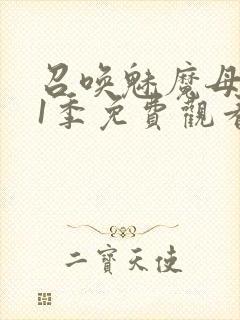 召喚魅魔母
1季免費觀看
二寶天使